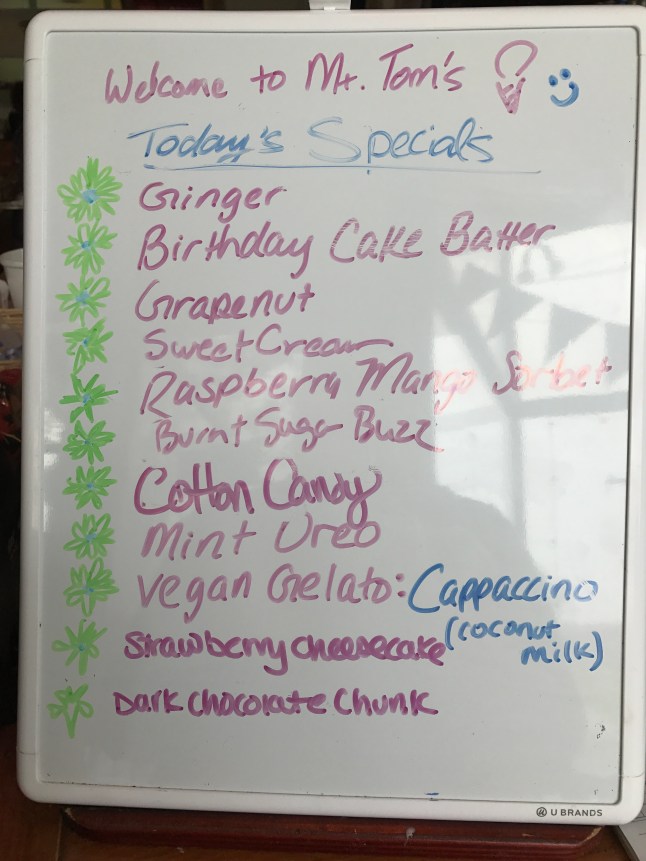 Welcome to Mt. Tom's
Today's Specials
Ginger
Birthday Cake Batter
Grapenut
Sweet Cream
Raspberry Mango Sorbet
Burnt Sugar Buzz
Cotton Candy
Mint Oreo
Vegan Gelato: Cappaccino
(coconut milk)
Strawberry cheesecake
Dark Chocolate Chunk
U BRANDS